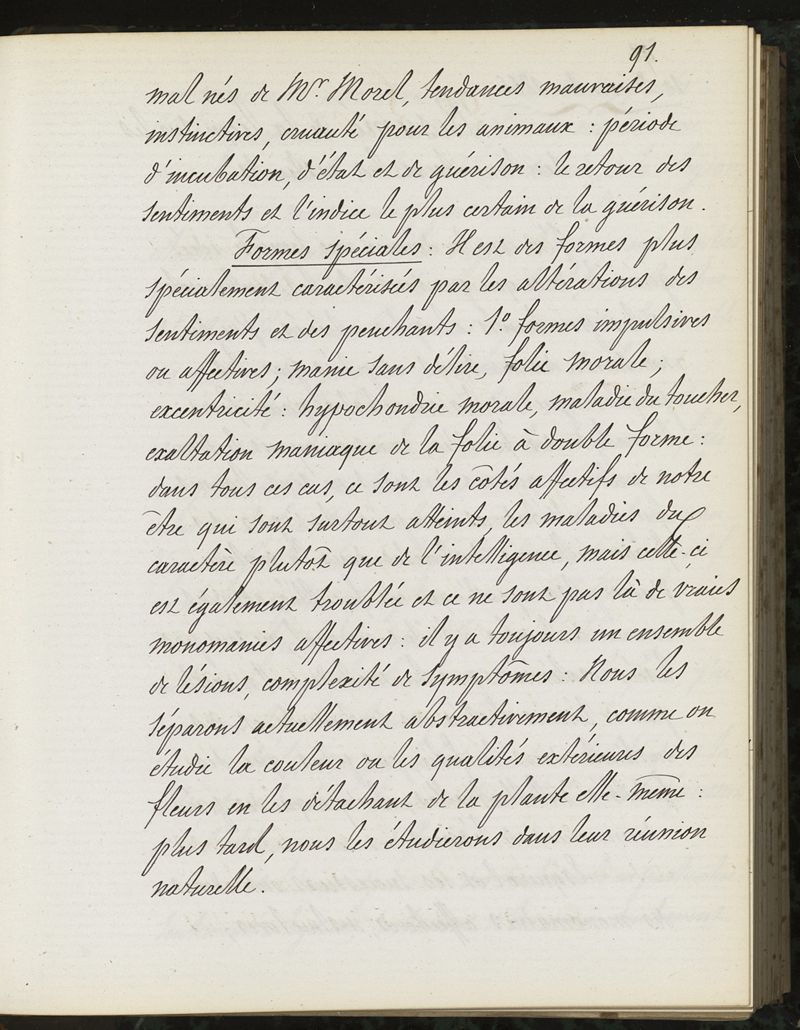 91.
mal nés de Mr Morel, tendances mauvaises,
instinctives, cruauté pour les animaux : période
d'incubation, d'état et de guérison : le retour des
sentiments et l'indice le plus certain de la guérison.
Formes spéciales : Il est des formes plus
spécialement caractérisées par les altérations des
sentiments et des penchants : 1.º formes impulsives
ou affectives ; manie sans délire, folie morale ;
excentricité : hypochondrie morale, maladie du toucher,
exaltation maniaque de la folie à double forme :
dans tous ces cas, ce sont les côtés affectifs de notre
être qui sont surtout atteints, les maladies du
caractère plutôt que de l'intelligence, mais celle-ci
est également troublée et ce ne sont pas là de vraies
monomanies affectives : il y a toujours un ensemble
de lésions, complexité de symptômes : Nous les
séparons actuellement abstractivement, comme on
étudie la couleur ou les qualités extérieures des
fleurs en les détachant de la plante elle-même :
plus tard, nous les étudierons dans leur réunion
naturelle.